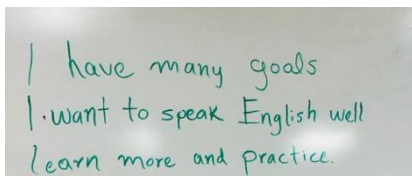 I have many goals
I.want to speak English well
learn more and practice.